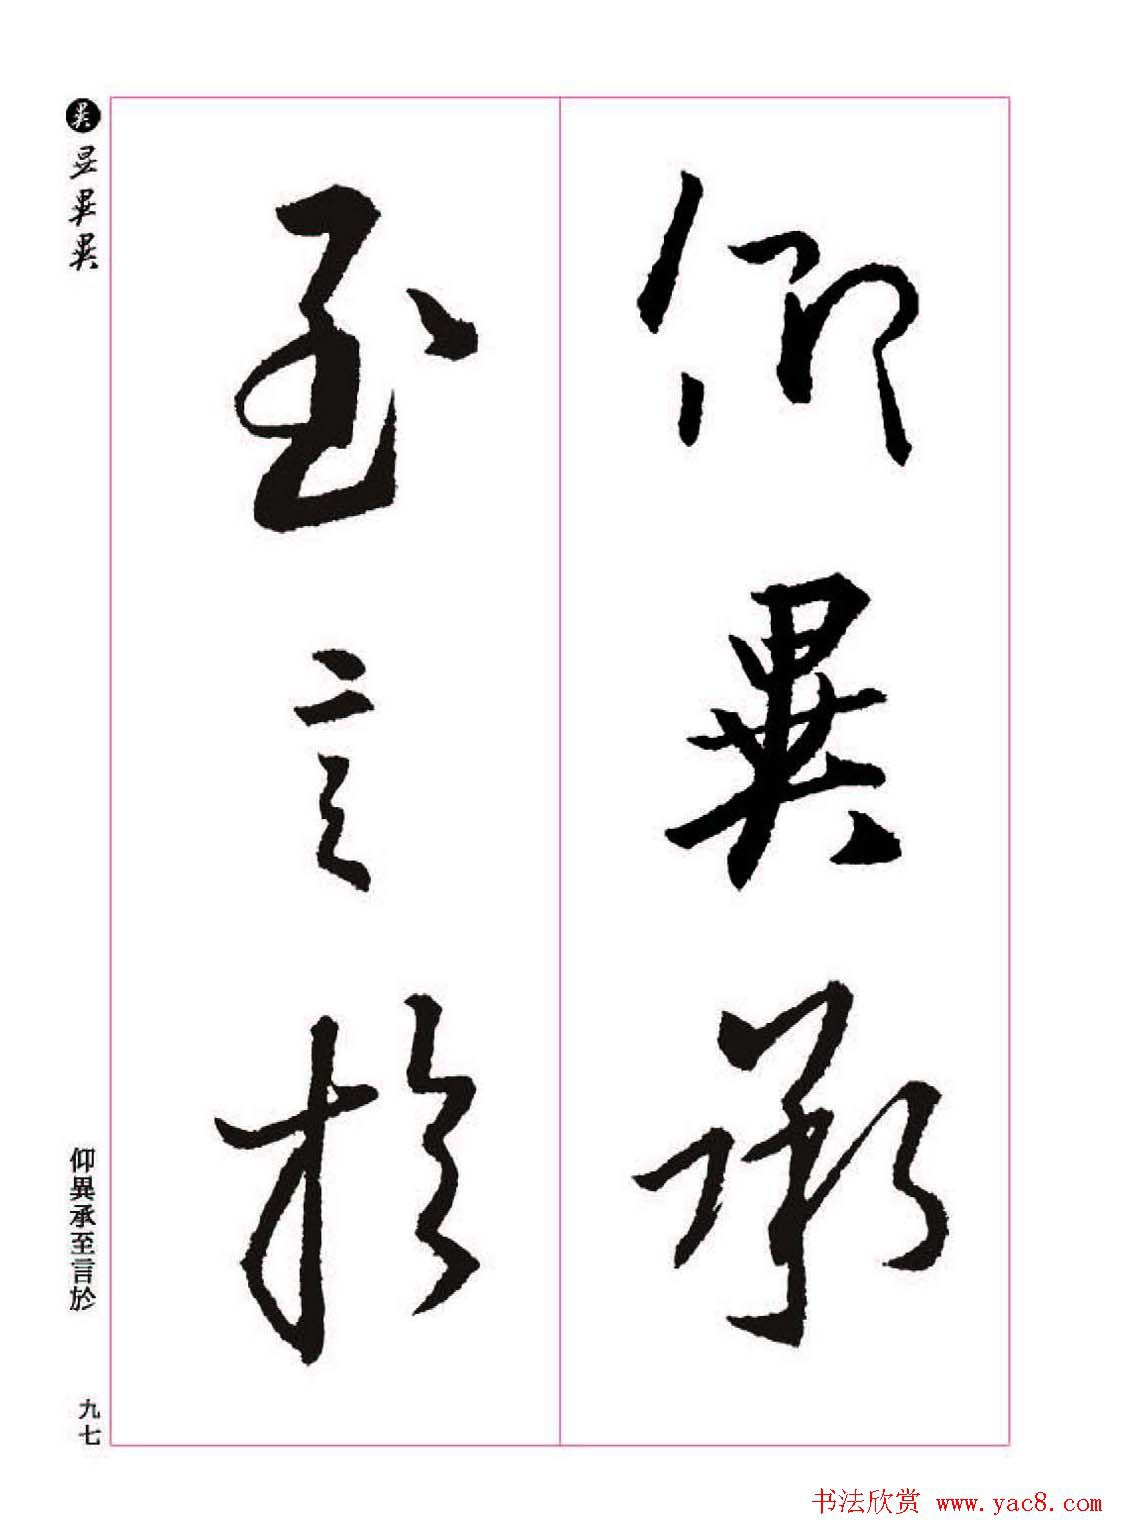 仰異承
至言於
異
仰異承至言於
九七
书法欣赏 www.yac8.com